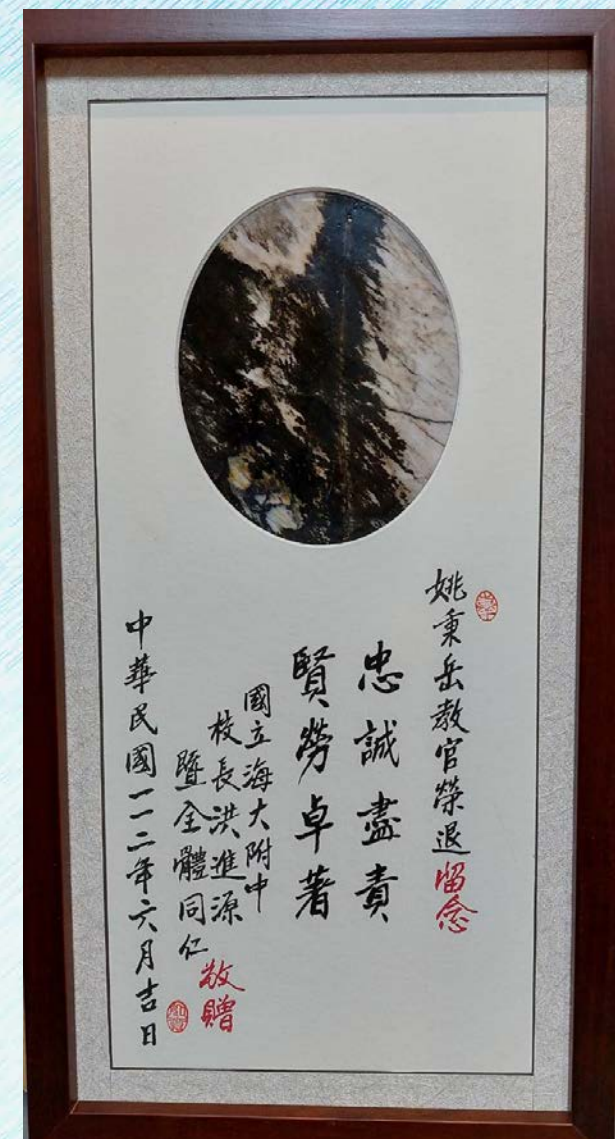 姚秉岳教官榮退留念
忠誠盡責
賢勞卓著
國立海大附中
校長洪進源
暨全體同仁
敬贈
中華民國一一二年六月吉日